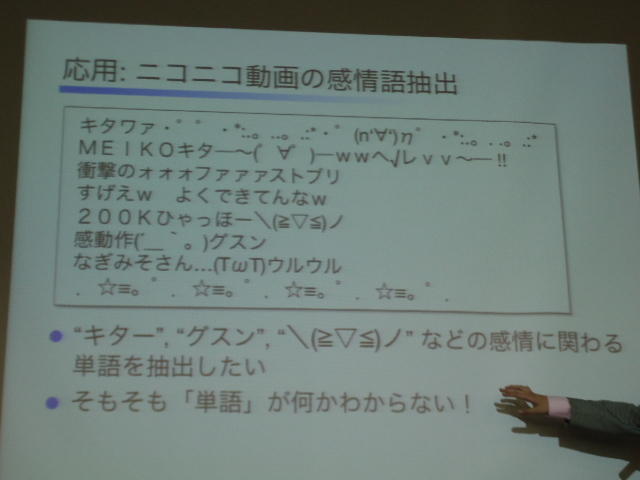 応用: ニコニコ動画の感情語抽出
キタワァ・゜゜・*:..。..。.:*・゜(n'∀')η゜・*:..。. .。.:*
ＭＥＩＫＯキタ―〜(゜∀゜)―ｗｗへ√レｖｖ〜―!!
衝撃のォォォファァァストブリ
すげえｗ　よくできてんなｗ
２００Ｋひゃっほー＼(≧▽≦)ノ
感動作(´＿｀。)グスン
なぎみそさん…(TωT)ウルウル
．☆≡。゜．☆≡。゜．☆≡。゜．☆≡。゜．
“キター”, “グスン”, “＼(≧▽≦)ノ” などの感情に関わる
単語を抽出したい
そもそも「単語」が何かわからない！